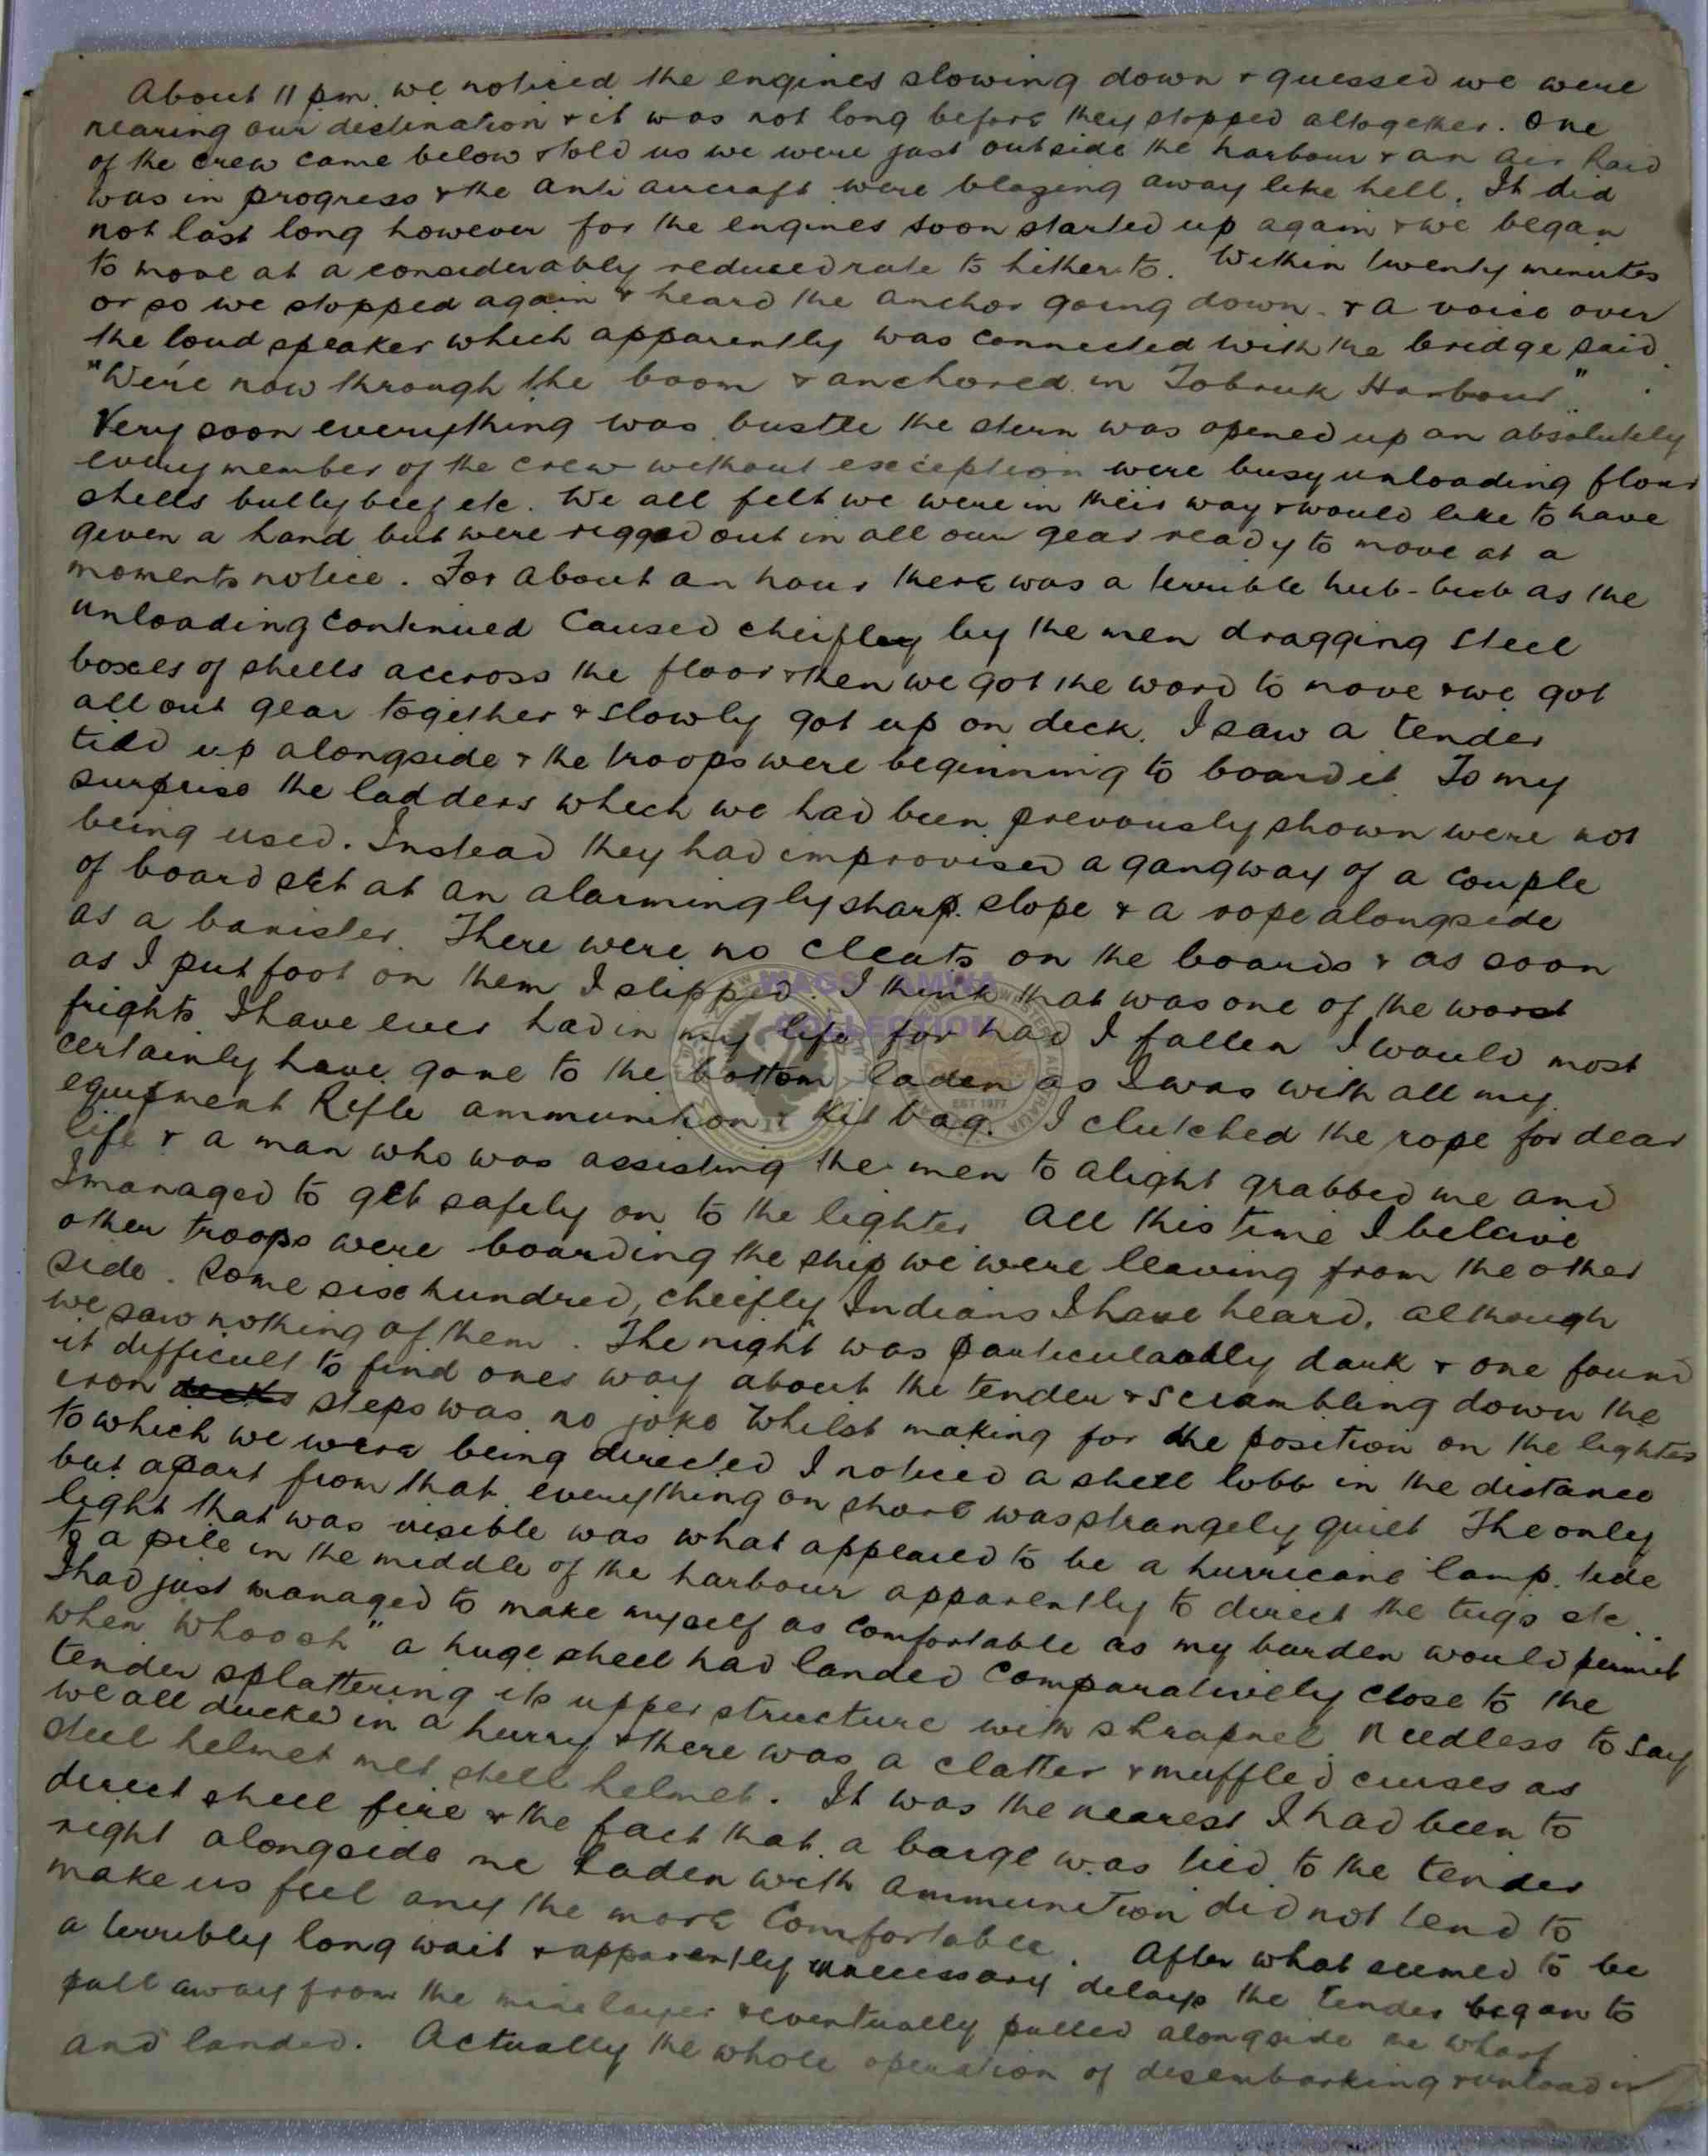 About 11 pm. we noticed the engines slowing down & guessed we were
nearing our destination & it was not long before they stopped altogether. One
of the crew came below & told us we were just outside the harbour & an air Raid
was in progress & the anti aircraft were blazing away like hell. It did
not last long however for the engines soon started up again & we began
to move at a considerably reduced rate to hitherto. Within twenty minutes
or so we stopped again & heard the anchor going down. & a voice over
the loud speaker which apparently was connected with the bridge said
"We're now through the boom & anchored in Tobruk Harbour"
Very soon everything was bustle the stern was opened up an absolutely
every member of the crew without exception were busy unloading flour
shells bully beef etc. We all felt we were in their way & would like to have
given a hand but were rigged out in all our gear ready to move at a
moments notice. For about an hour there was a terrible hub-bub as the
unloading continued caused cheifley by the men dragging steel
boxes of shells accross the floor & then we got the word to move & we got
all out gear together & slowly got up on deck. I saw a tender
tied up alongside & the troops were beginning to board it. To my
surprise the ladders which we had been prevously shown were not
being used. Instead they had improvised a gangway of a couple
of board set at an alarmingly sharp. slope & a rope alongside
as a banister. There were no cleats on the boards & as soon
as I put foot on them I slipped. I think that was one of the worst
frights I have ever had in my life for had I fallen I would most
certainly have gone to the bottom laden as I was with all my
equipment Rifle ammunition & Kit bag. I clutched the rope for dear
life & a man who was assisting the men to alight grabbed me and
I managed to get safely on to the lighter. All this time I beleive
other troops were boarding the ship we were leaving from the other
side. Some six hundred, cheifly Indians I have heard, although
we saw nothing of them. The night was particularly dark & one found
it difficult to find ones way about the tender & scrambling down the
iron steps was no joke Whilst making for the position on the lighter
to which we were being directed I noticed a shell lobb in the distance
but apart from that everything on shore was strangely quiet The only
light that was visible was what appeared to be a hurricane lamp. tide
to a pile in the middle of the harbour apparently to direct the tugs etc..
I had just managed to make myself as comfortable as my burden would permit
when whoosh" a huge shell had landed comparatively close to the
tender splattering its upper structure with shrapnel Needless to say
we all ducked in a hurry & there was a clatter & muffled curses as
steel helmet met steel helmet. It was the nearest I had been to
direct shell fire & the fact that a barge was tied to the tender
right alongside me laden with ammunition did not tend to
make us feel any the more comfortable. After what seemed to be
a terribly long wait & apparently unnecessary delays the tender began to
pull away from the minelayer & eventually pulled alongside the wharf
and landed. Actually the whole operation of disembarking &
WAGS - AMWA
COLLECTION
EST 1977